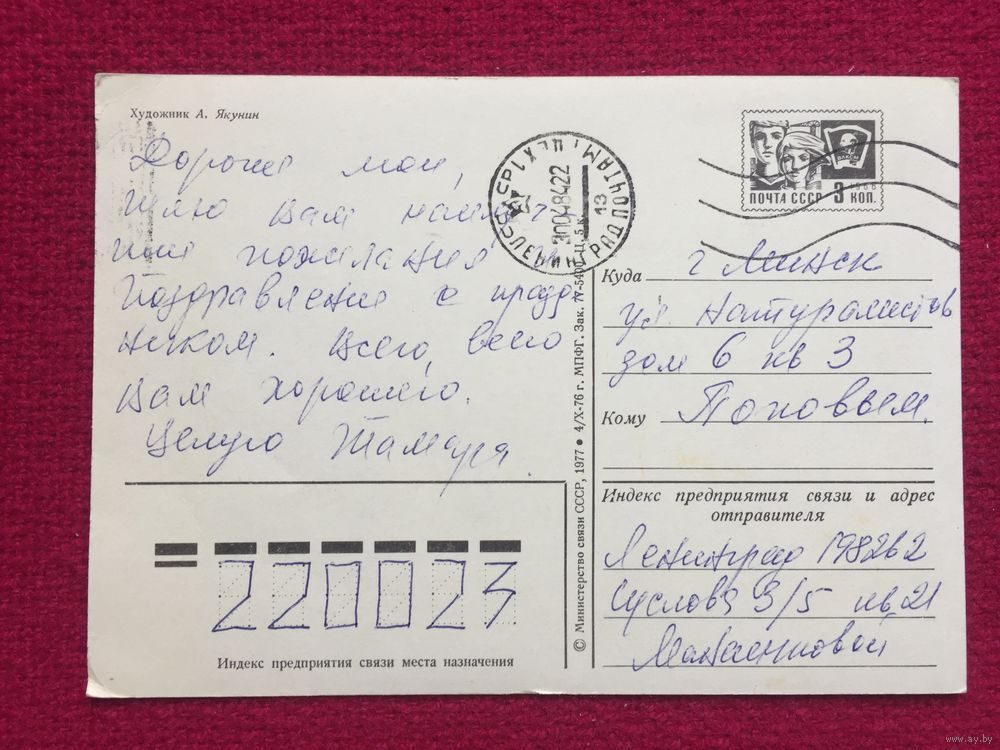 Художник А. Якунин
Дорогие мои,
шлю вам
пожелания и
поздравления с празд
ником. Всего, всего
вам хорошего.
Целую Тамара.
220023
Индекс предприятия связи места назначения
© Министерство связи СССР, 1977 • 4/X-76 г. МПФГ. Зак.
30048422
13
ЛЕНИНГРАД ПОЧТАМТ
ВЛКСМ
1966
ПОЧТА СССР 3 КОП.
Куда г Минск
ул. Натуралистов
дом 6 кв 3
Кому Поповым.
Индекс предприятия связи и адрес
отправителя
Ленинград 198262
Суслова 3/5 кв, 21
www.ay.by